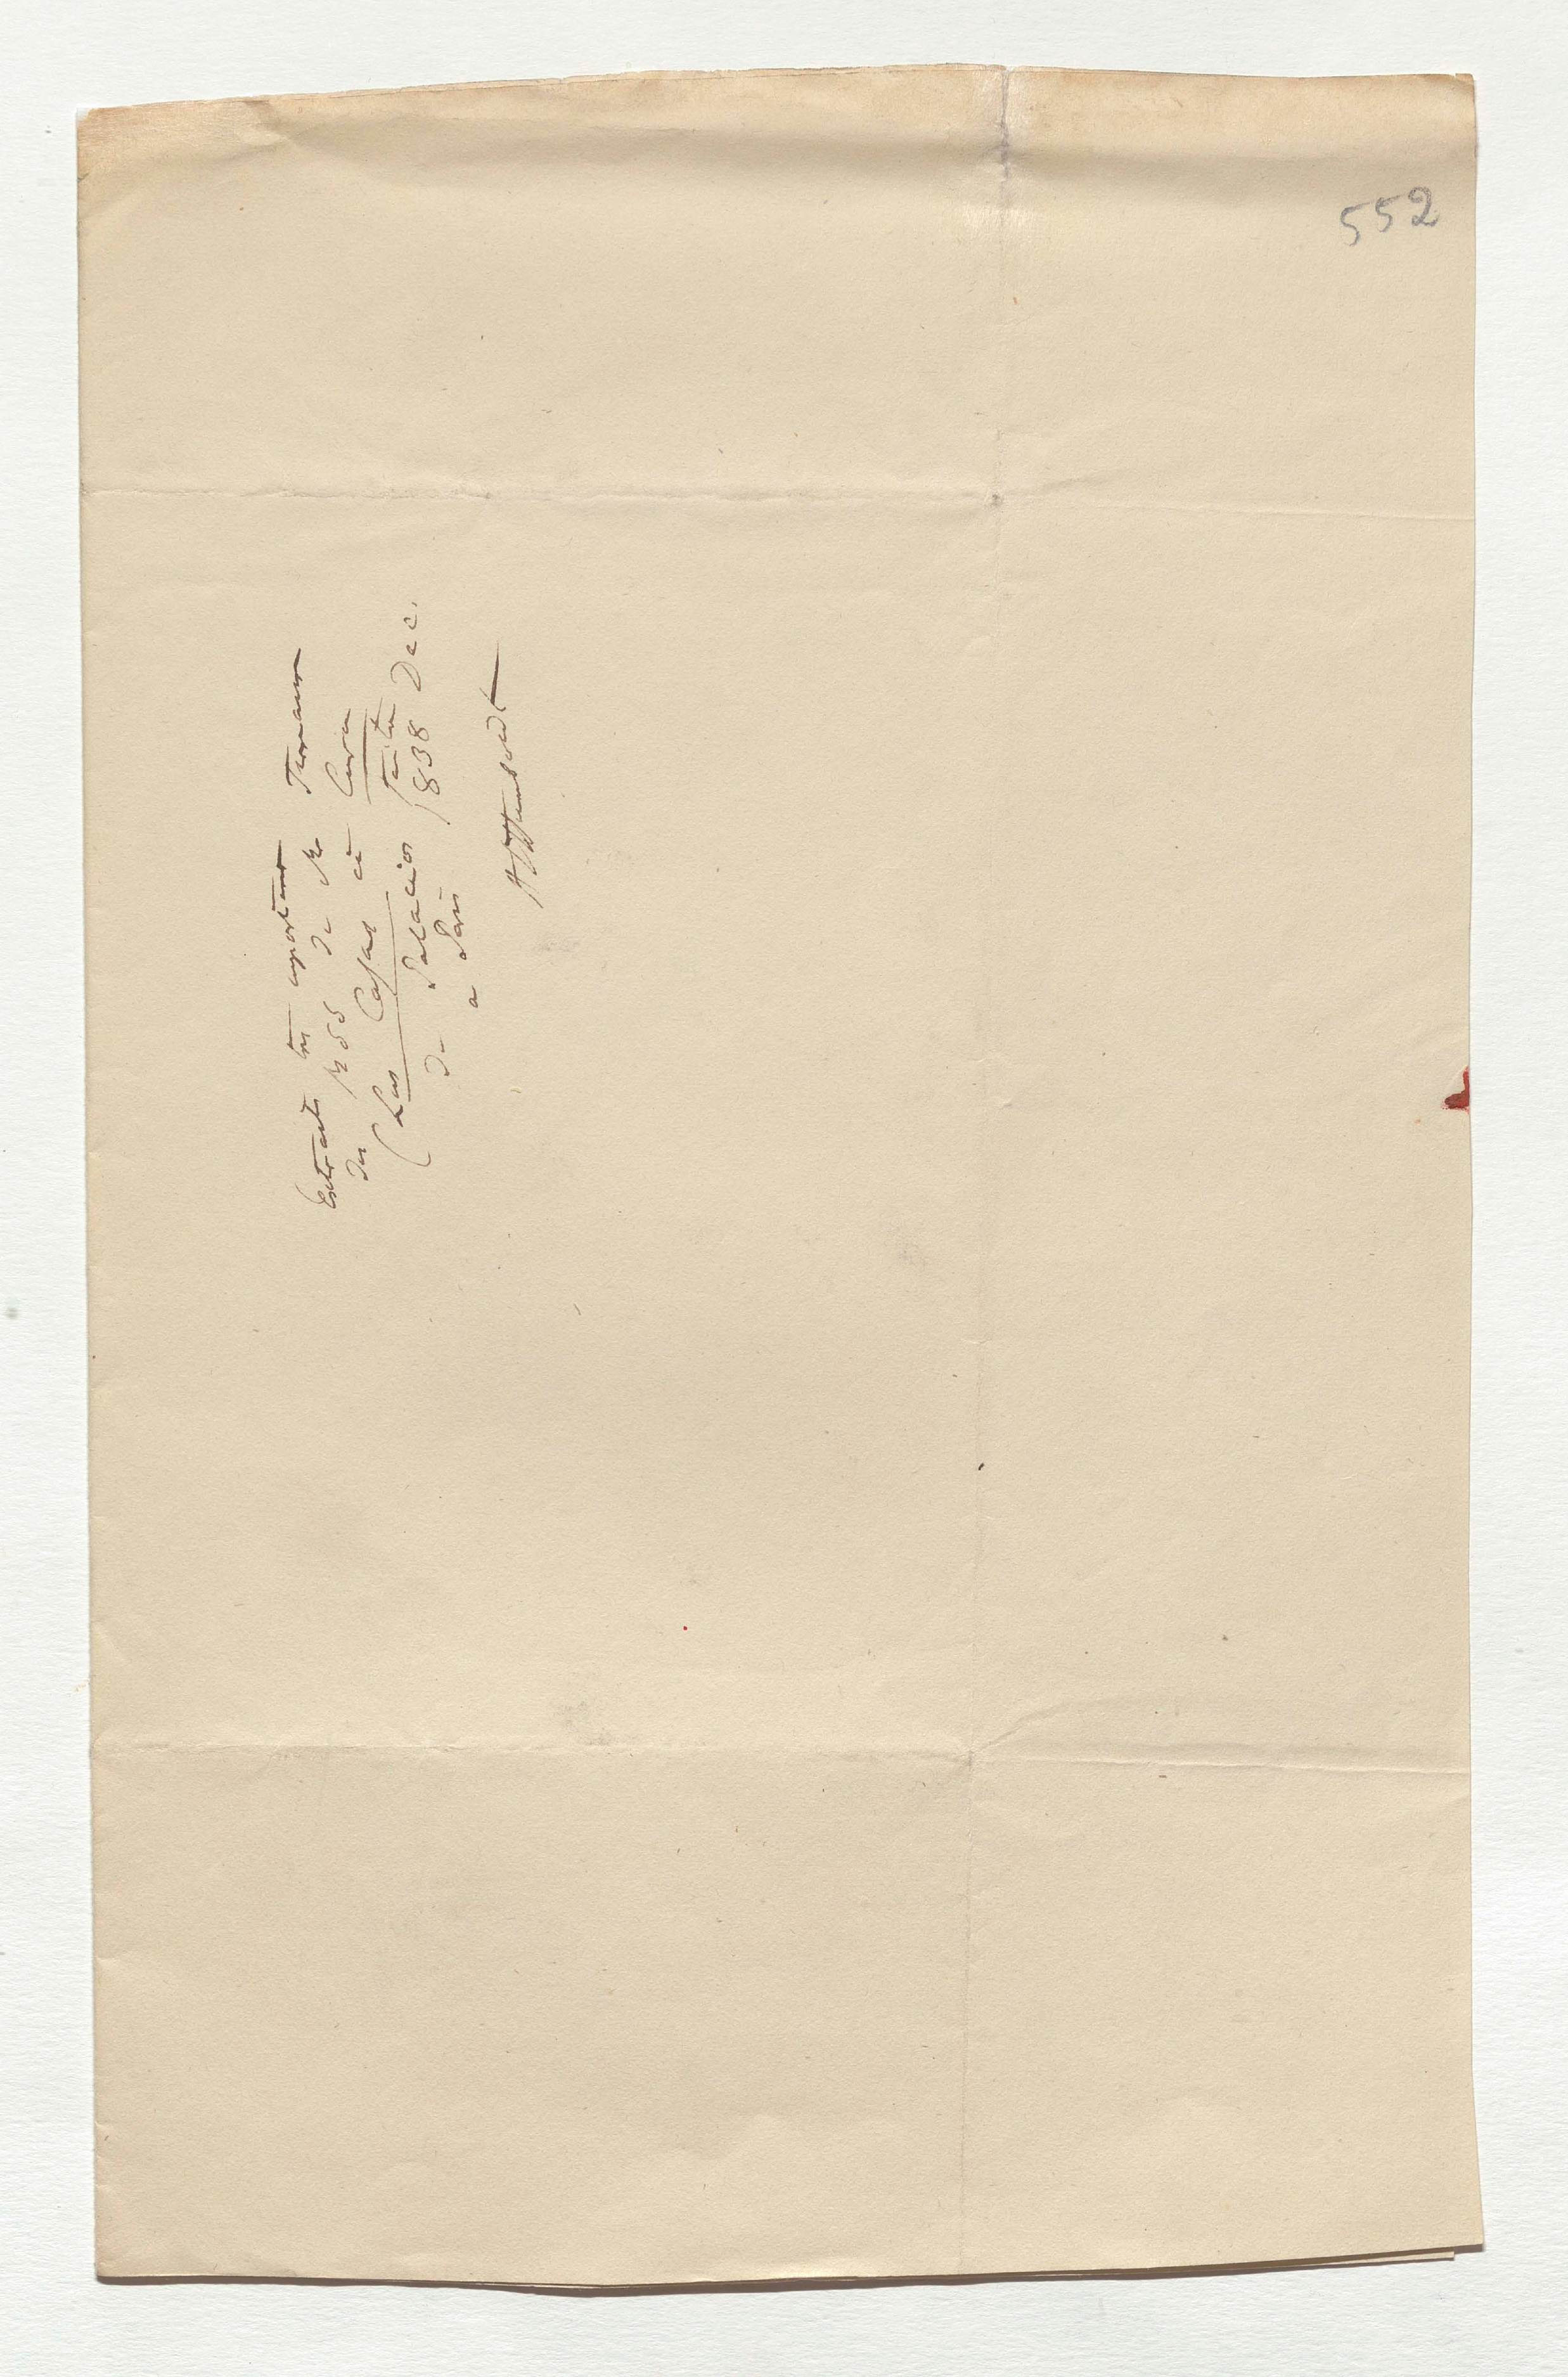 552
Extraits très importans
des MSS de Mr Ternaux
(Las Casas et Cuba
de Palacios faits
a Paris 1838 Dec.
AlHumboldt